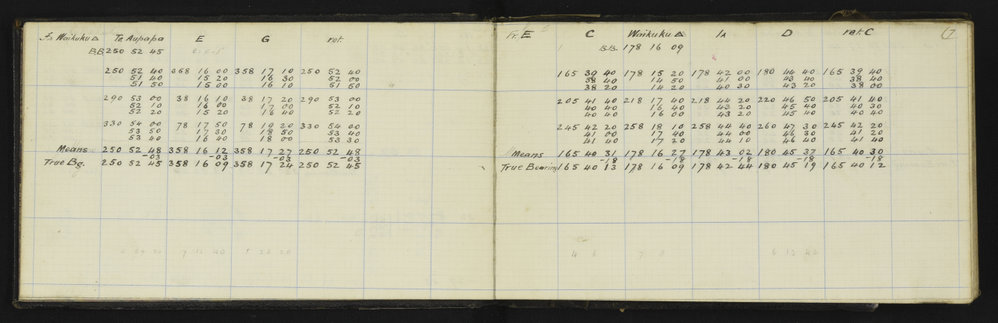 Fr. Waikuku △ Te Aupapa E G ret.
B.B. 250 52 45
250 52 40 358 16 00 358 17 10 250 52 40
51 40 15 20 16 30 52 00
51 50 15 00 16 10 51 50
290 53 00 38 16 10 38 17 20 290 53 00
52 10 16 00 17 00 52 10
52 20 15 20 16 40 52 20
330 54 00 78 17 50 78 19 20 330 54 00
53 50 17 30 18 50 53 40
53 40 16 40 18 00 53 30
Means 250 52 48 358 16 12 358 17 27 250 52 48
-03 -03 -03 -03
True Bg. 250 52 45 358 16 09 358 17 24 250 52 45
Fr. E C Waikuku △ D ret. C 7
B.B. 178 16 09
165 39 40 178 15 20 178 42 00 180 44 40 165 39 40
38 40 14 50 41 00 43 40 38 40
38 20 14 20 40 30 43 20 38 00
205 41 40 218 17 40 218 44 20 220 46 50 205 41 40
40 40 16 40 43 20 45 40 40 30
40 40 16 00 43 20 45 40 40 40
245 42 20 258 18 10 258 44 40 260 47 30 245 42 20
41 00 17 40 44 00 46 30 41 20
41 40 17 20 44 10 46 40 41 40
Means 165 40 31 178 16 27 178 43 02 180 45 37 165 40 30
-18 -18 -18 -18 -18
True Bearing 165 40 13 178 16 09 178 42 44 180 45 19 165 40 12